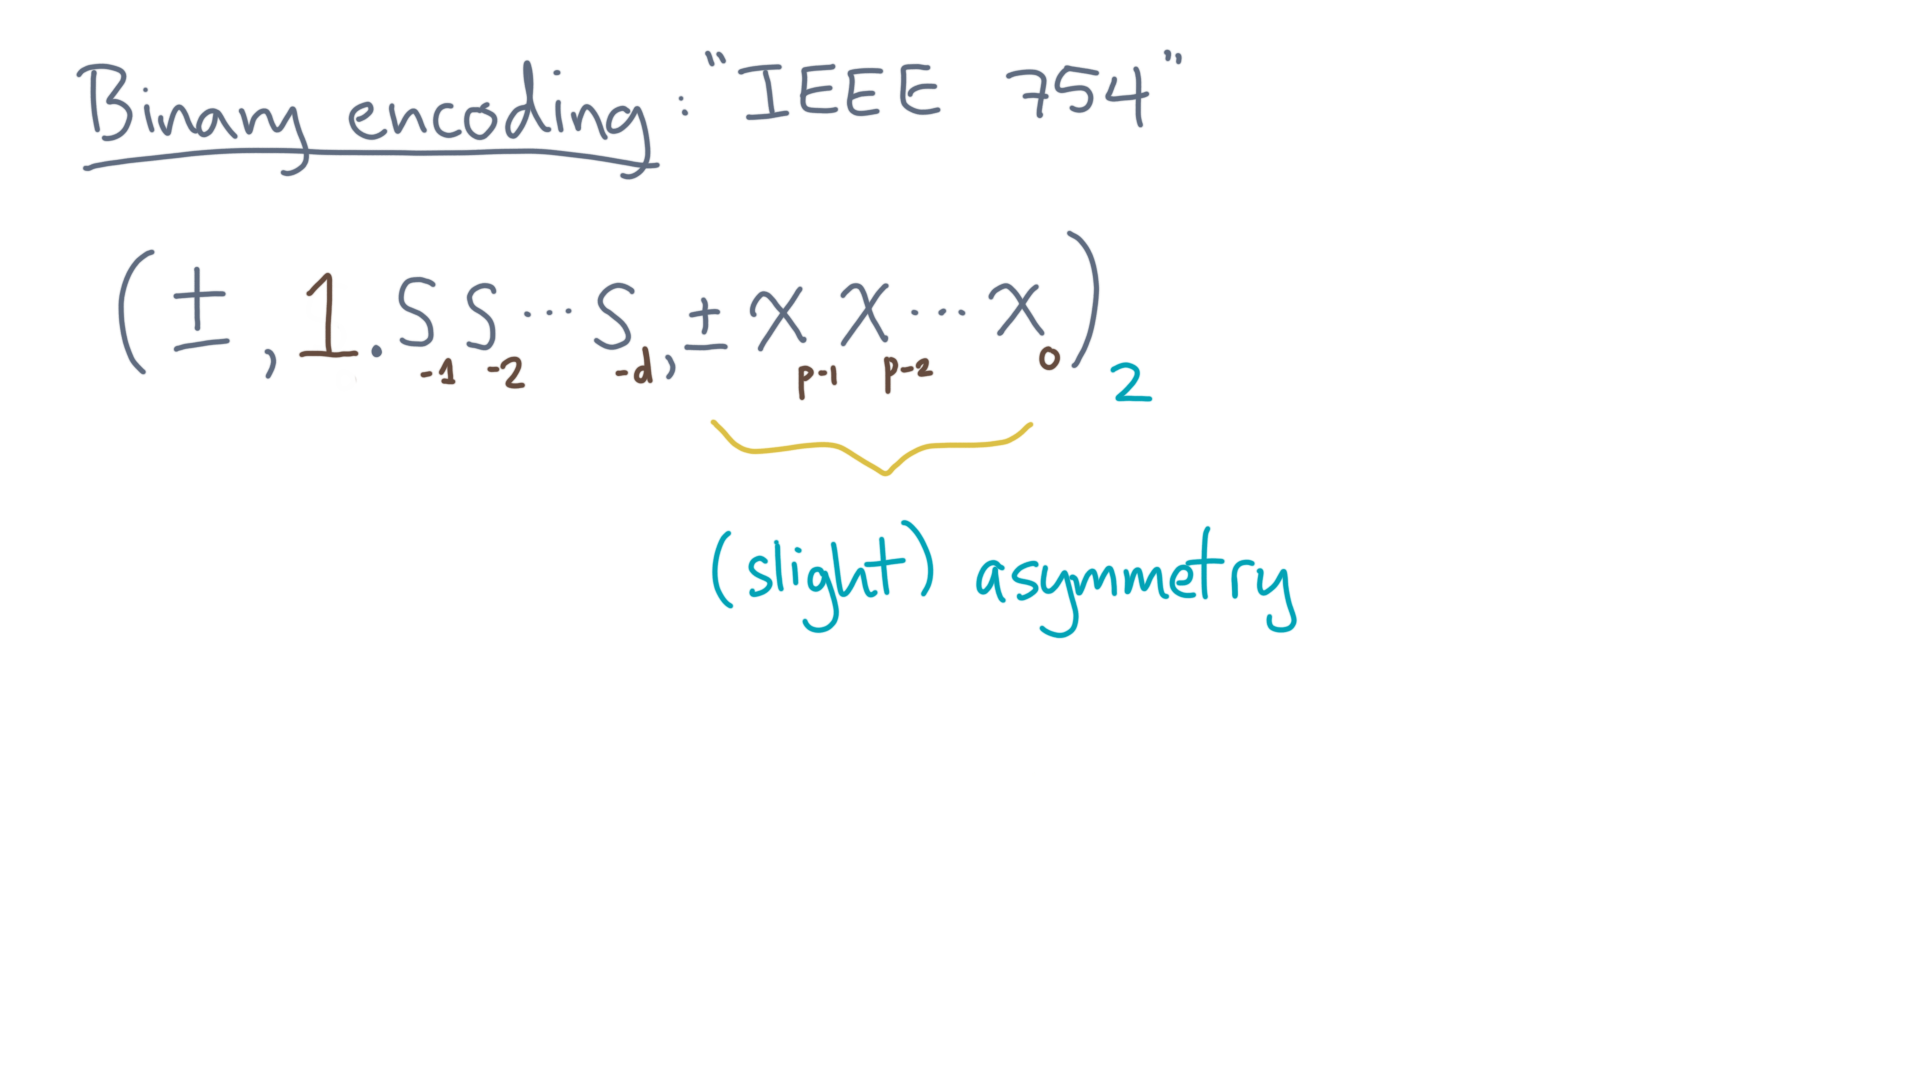 Binary encoding: "IEEE 754"
(±, 1.S₋₁S₋₂···S₋d, ±xₚ₋₁xₚ₋₂···x₀)₂
(slight) asymmetry